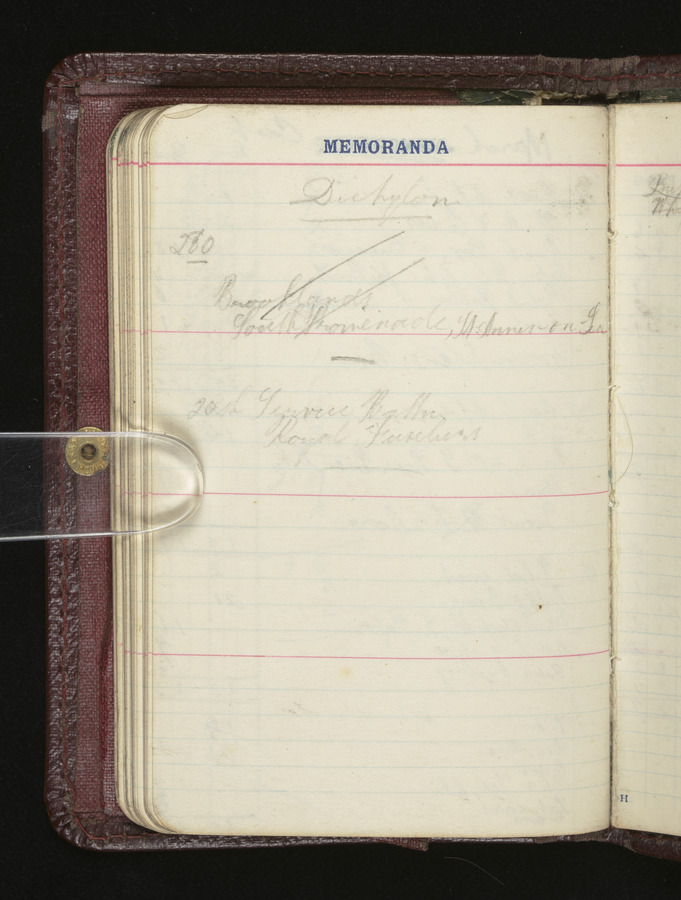 MEMORANDA
Dichylon
260
Brooklands
South Promenade, St Annes-on-Sea
20th Service Battn
Royal Fusiliers
H